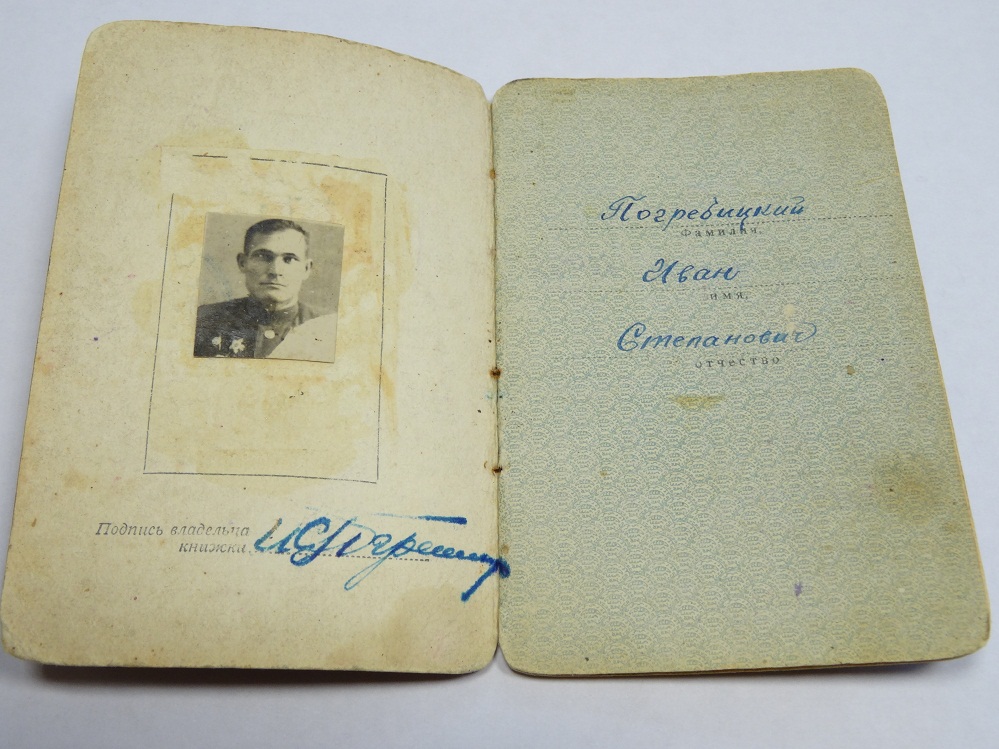 Подпись владельца
книжки
Погребицкий
Фамилия.
Иван
имя.
Степанович
отчество